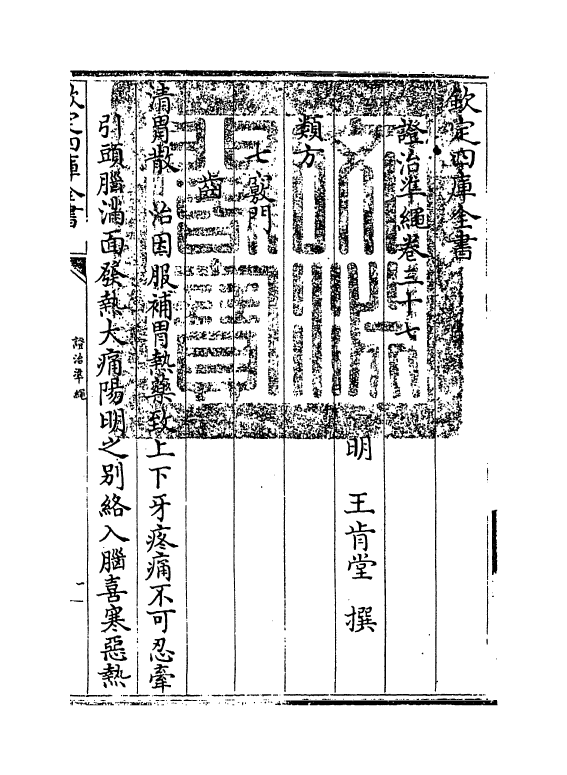 欽定四庫全書
證治準繩卷三十七
明 王肯堂 撰
類方
七竅門
齒
清胃散 治因服補胃熱藥致上下牙疼痛不可忍牽
引頭腦滿面發熱大痛陽明之別絡入腦喜寒惡熱
欽定四庫全書
證治準繩
一